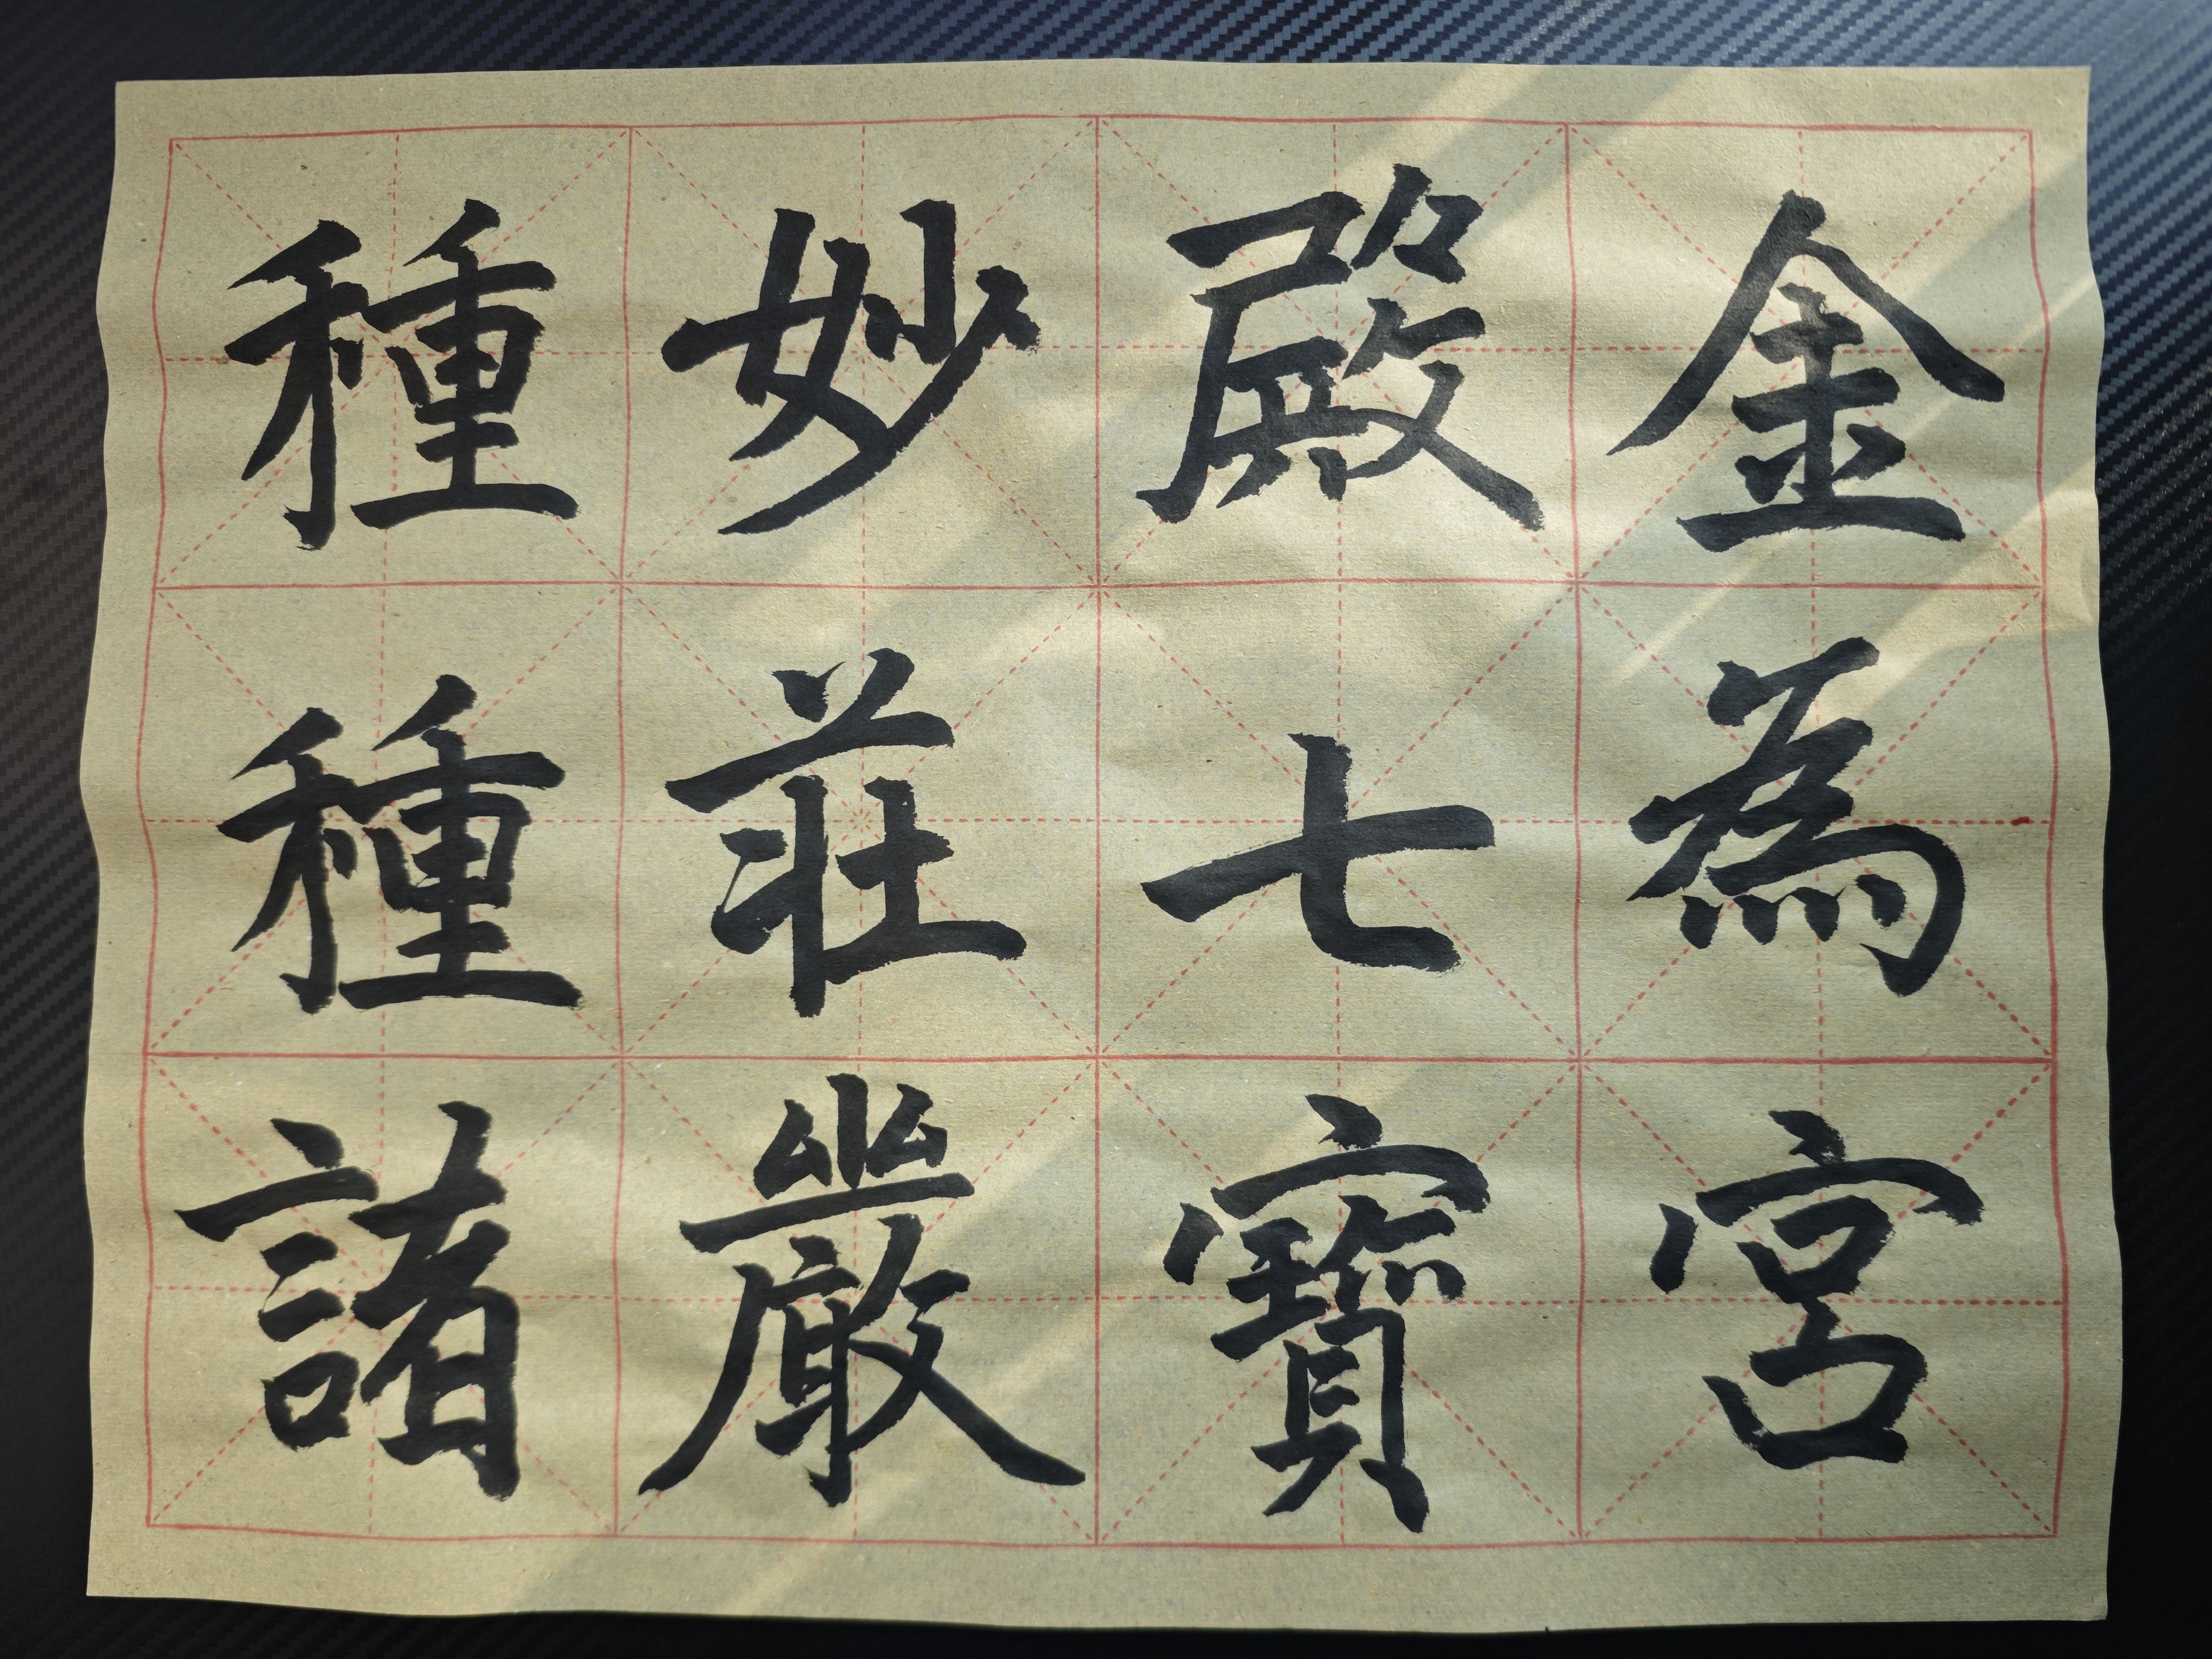 金為宮
殿七寶
妙莊嚴
種種諸